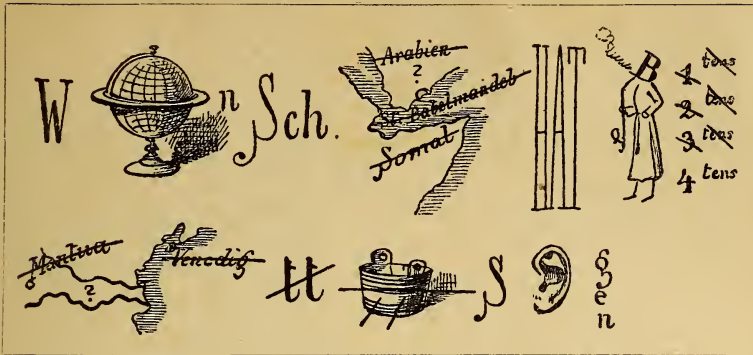 W n Sch.
Arabien
?
St. Babelmandeb
Somal
HAT
B
g
1 tens
2 tens
3 tens
4 tens
Mantua
?
Venedig
tt
S
g
e
n